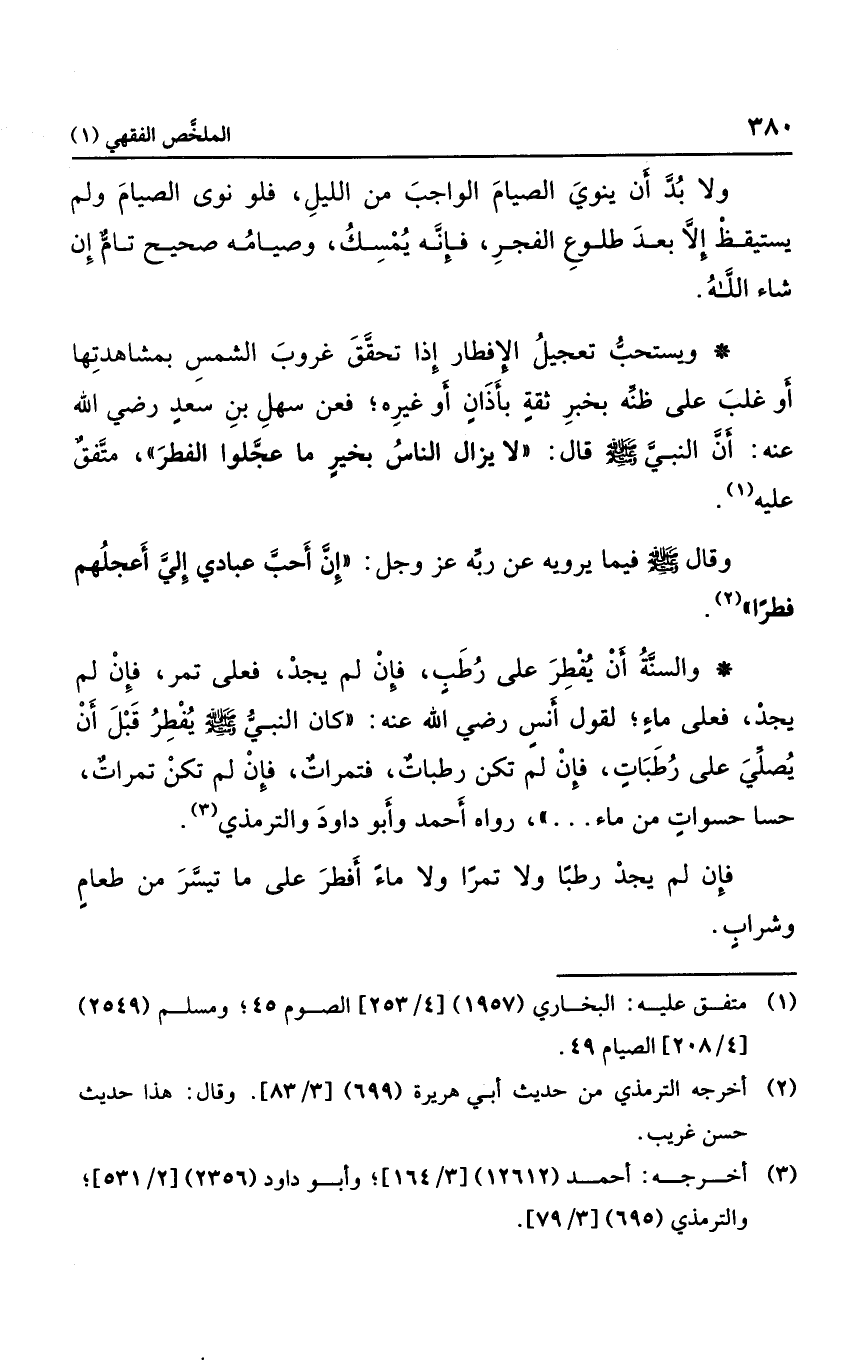 ٣٨٠ الملخَّص الفقهي (١)
ولا بُدَّ أَن ينويَ الصيامَ الواجبَ من الليلِ، فلو نوى الصيامَ ولم
يستيقظْ إِلَّا بعدَ طلوعِ الفجرِ، فإِنَّه يُمْسِكُ، وصيامُه صحيح تامٌّ إِن
شاء اللَّهُ.
* ويستحبُّ تعجيلُ الإِفطار إِذا تحقَّقَ غروبَ الشمسِ بمشاهدتِها
أَو غلبَ على ظنِّه بخبرِ ثقةٍ بأَذَانٍ أَو غيرِه؛ فعن سهلِ بنِ سعدٍ رضي الله
عنه: أَنَّ النبيَّ ﷺ قال: «لا يزال الناسُ بخيرٍ ما عجَّلوا الفطرَ»، متَّفقٌ
عليه(١).
وقال ﷺ فيما يرويه عن ربِّه عز وجل: «إِنَّ أَحبَّ عبادي إِليَّ أَعجلُهم
فطرًا»(٢).
* والسنَّةُ أَنْ يُفْطِرَ على رُطَبٍ، فإِنْ لم يجدْ، فعلى تمر، فإِنْ لم
يجدْ، فعلى ماءٍ؛ لقول أَنسٍ رضي الله عنه: «كان النبيُّ ﷺ يُفْطِرُ قَبْلَ أَنْ
يُصلِّيَ على رُطَبَاتٍ، فإِنْ لم تكن رطباتٌ، فتمراتٌ، فإِنْ لم تكنْ تمراتٌ،
حسا حسواتٍ من ماء...»، رواه أَحمد وأَبو داودَ والترمذي(٣).
فإِن لم يجدْ رطبًا ولا تمرًا ولا ماءً أَفطرَ على ما تيسَّرَ من طعامٍ
وشرابٍ.
(١) متفق عليه: البخاري (١٩٥٧) [٤/ ٢٥٣] الصوم ٤٥؛ ومسلم (٢٥٤٩)
[٤/ ٢٠٨] الصيام ٤٩.
(٢) أخرجه الترمذي من حديث أبي هريرة (٦٩٩) [٣/ ٨٣]. وقال: هذا حديث
حسن غريب.
(٣) أخرجه: أحمد (١٢٦١٢) [٣/ ١٦٤]؛ وأبو داود (٢٣٥٦) [٢/ ٥٣١]؛
والترمذي (٦٩٥) [٣/ ٧٩].